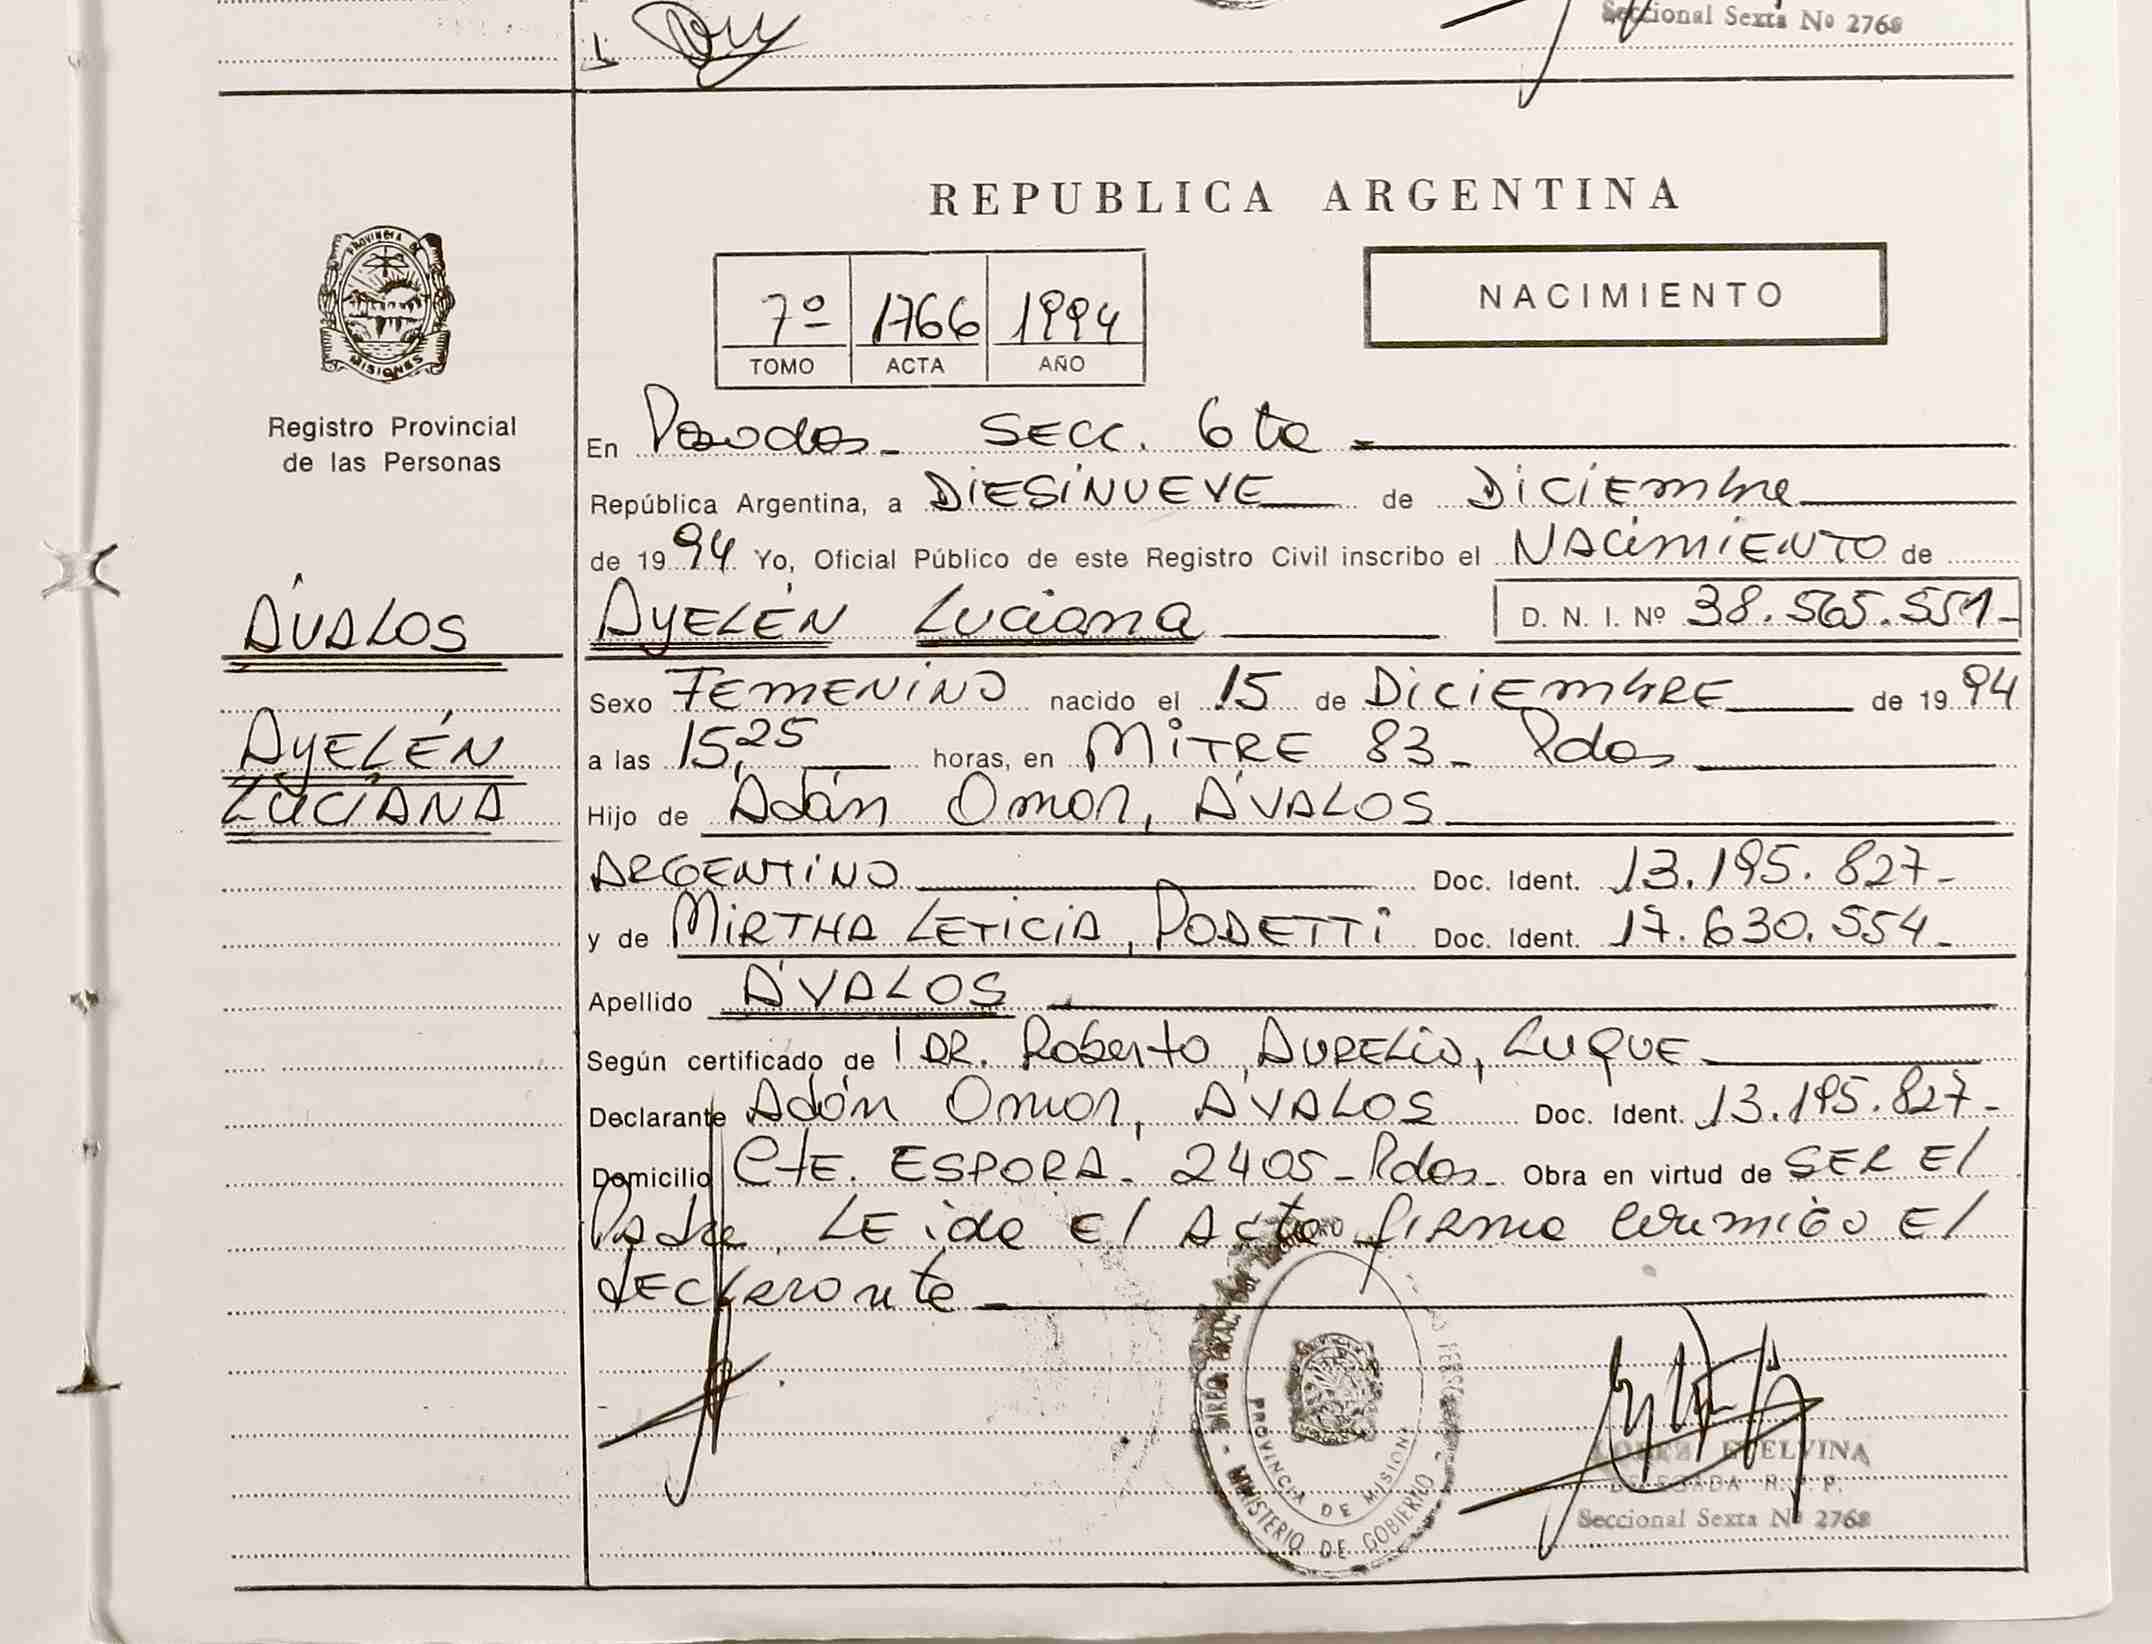 Seccional Sexta Nº 2768
REPUBLICA ARGENTINA
PROVINCIA DE
MISIONES
7º 1766 1994
TOMO ACTA AÑO
NACIMIENTO
Registro Provincial
de las Personas
En Posadas - SECC. 6ta -
República Argentina, a DIESINUEVE de DICIEMbre
de 1994 Yo, Oficial Público de este Registro Civil inscribo el NACIMIENTO de
ÁVALOS
AYELÉN Luciana D. N. I. Nº 38.565.551-
Sexo FEMENINO nacido el 15 de DICIEMBRE de 1994
AYELÉN
LUCIANA
a las 15,25 horas, en MITRE 83 - Pdas
Hijo de Adán Omar, ÁVALOS
ARGENTINO Doc. Ident. 13.195.827-
y de MIRTHA LETICIA, PODETTI Doc. Ident. 17.630.554-
Apellido ÁVALOS
Según certificado de l DR. Roberto AURELIO, LUQUE
Declarante Adán Omar, ÁVALOS Doc. Ident. 13.195.827-
Domicilio CtE. ESPORA - 2405 - Pdas - Obra en virtud de SER El
Padre. LEida El Acta firma conmigo El
dEclarante -
PROVINCIA DE MISIONES
MINISTERIO DE GOBIERNO
ETELVINA
DELEGADA R. P. P.
Seccional Sexta Nº 2768